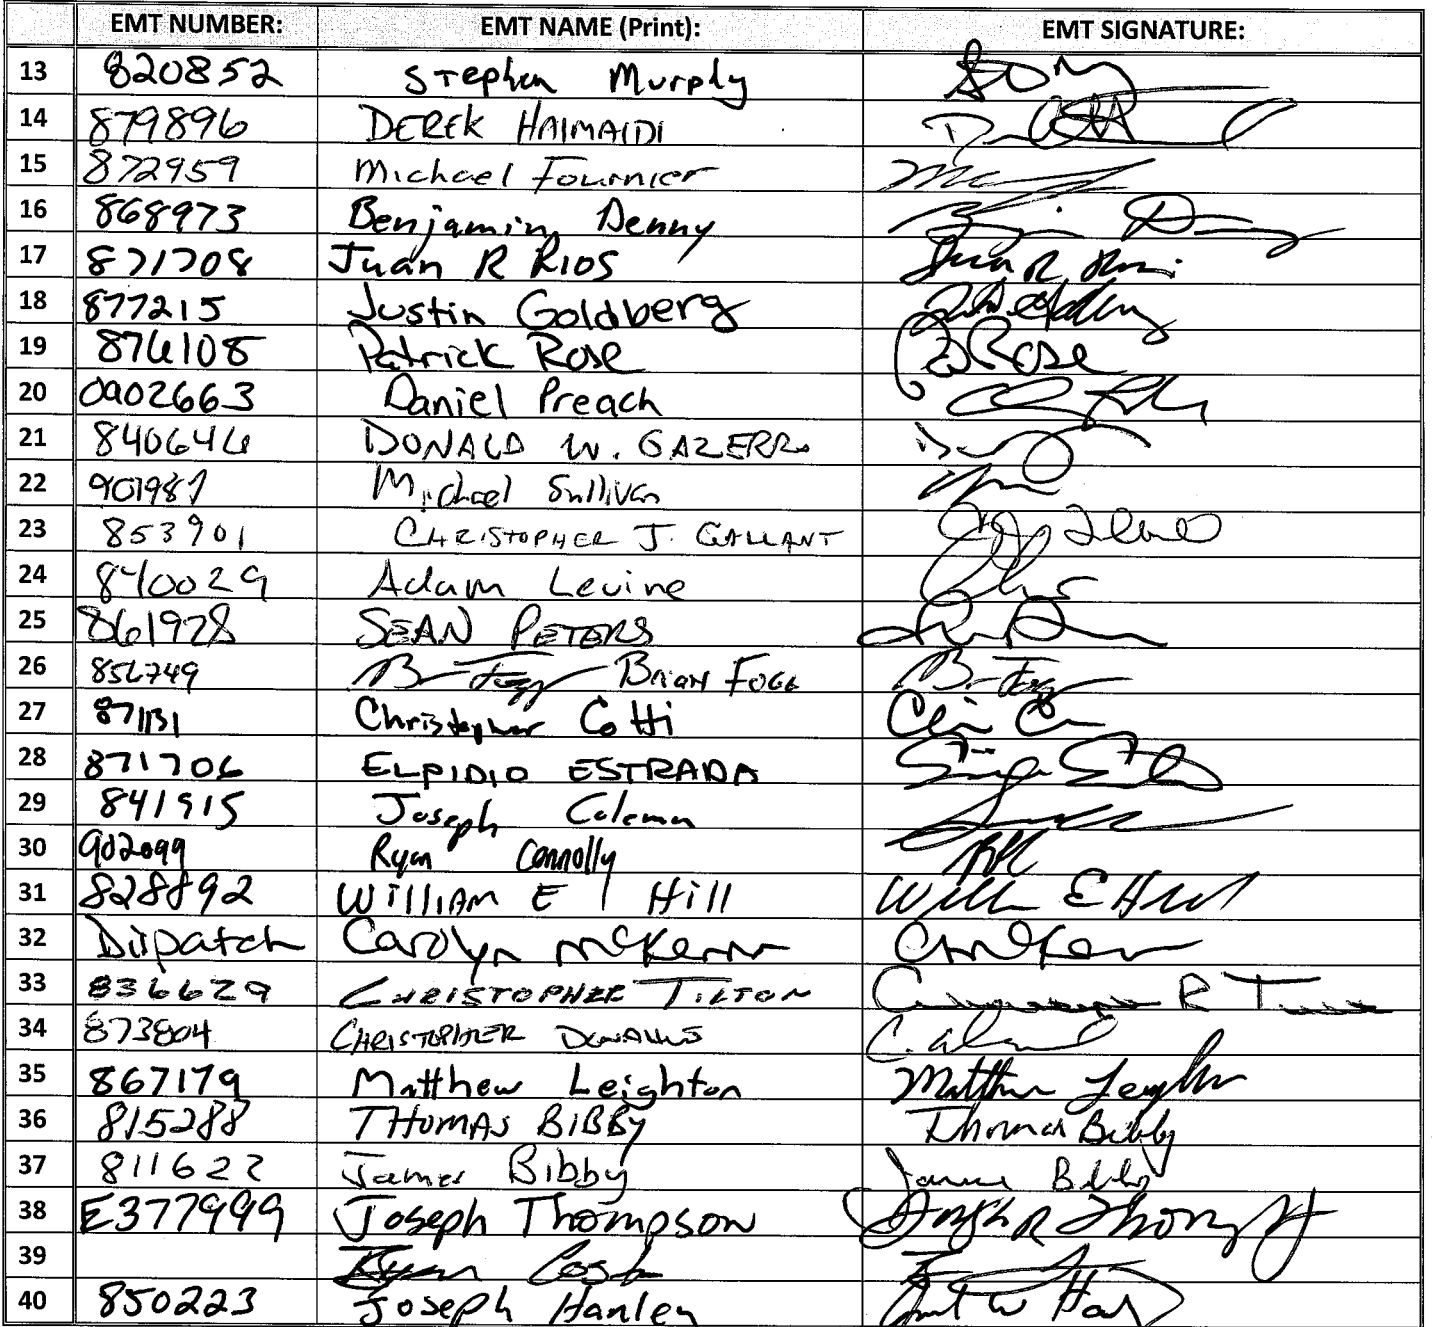 EMT NUMBER: EMT NAME (Print): EMT SIGNATURE:
13 820852 Stephen Murphy
14 879896 DEREK HAIMAIDI
15 872959 Michael Fournier
16 868973 Benjamin Denny
17 871708 Juan R RIOS Juan R Rios
18 877215 Justin Goldberg
19 876108 Patrick Rose P Rose
20 0902663 Daniel Preach
21 840646 DONALD W. GAZERRO
22 901987 Michael Sullivan
23 853901 CHRISTOPHER J. GALLANT
24 840029 Adam Levine
25 861978 SEAN PETERS
26 856749 BRIAN FOGG
27 871131 Christopher Cotti
28 871706 ELPIDIO ESTRADA
29 841915 Joseph Coleman
30 902099 Ryan Connolly
31 828892 WILLIAM E Hill Will E Hill
32 Dispatch Carolyn McKenna
33 836629 CHRISTOPHER TILTON
34 873804 CHRISTOPHER
35 867179 Matthew Leighton Matthew Leighton
36 815288 THOMAS BIBBY Thomas Bibby
37 811622 James Bibby James Bibby
38 E377999 Joseph Thompson
39 Ryan Costa
40 850223 Joseph Hanley